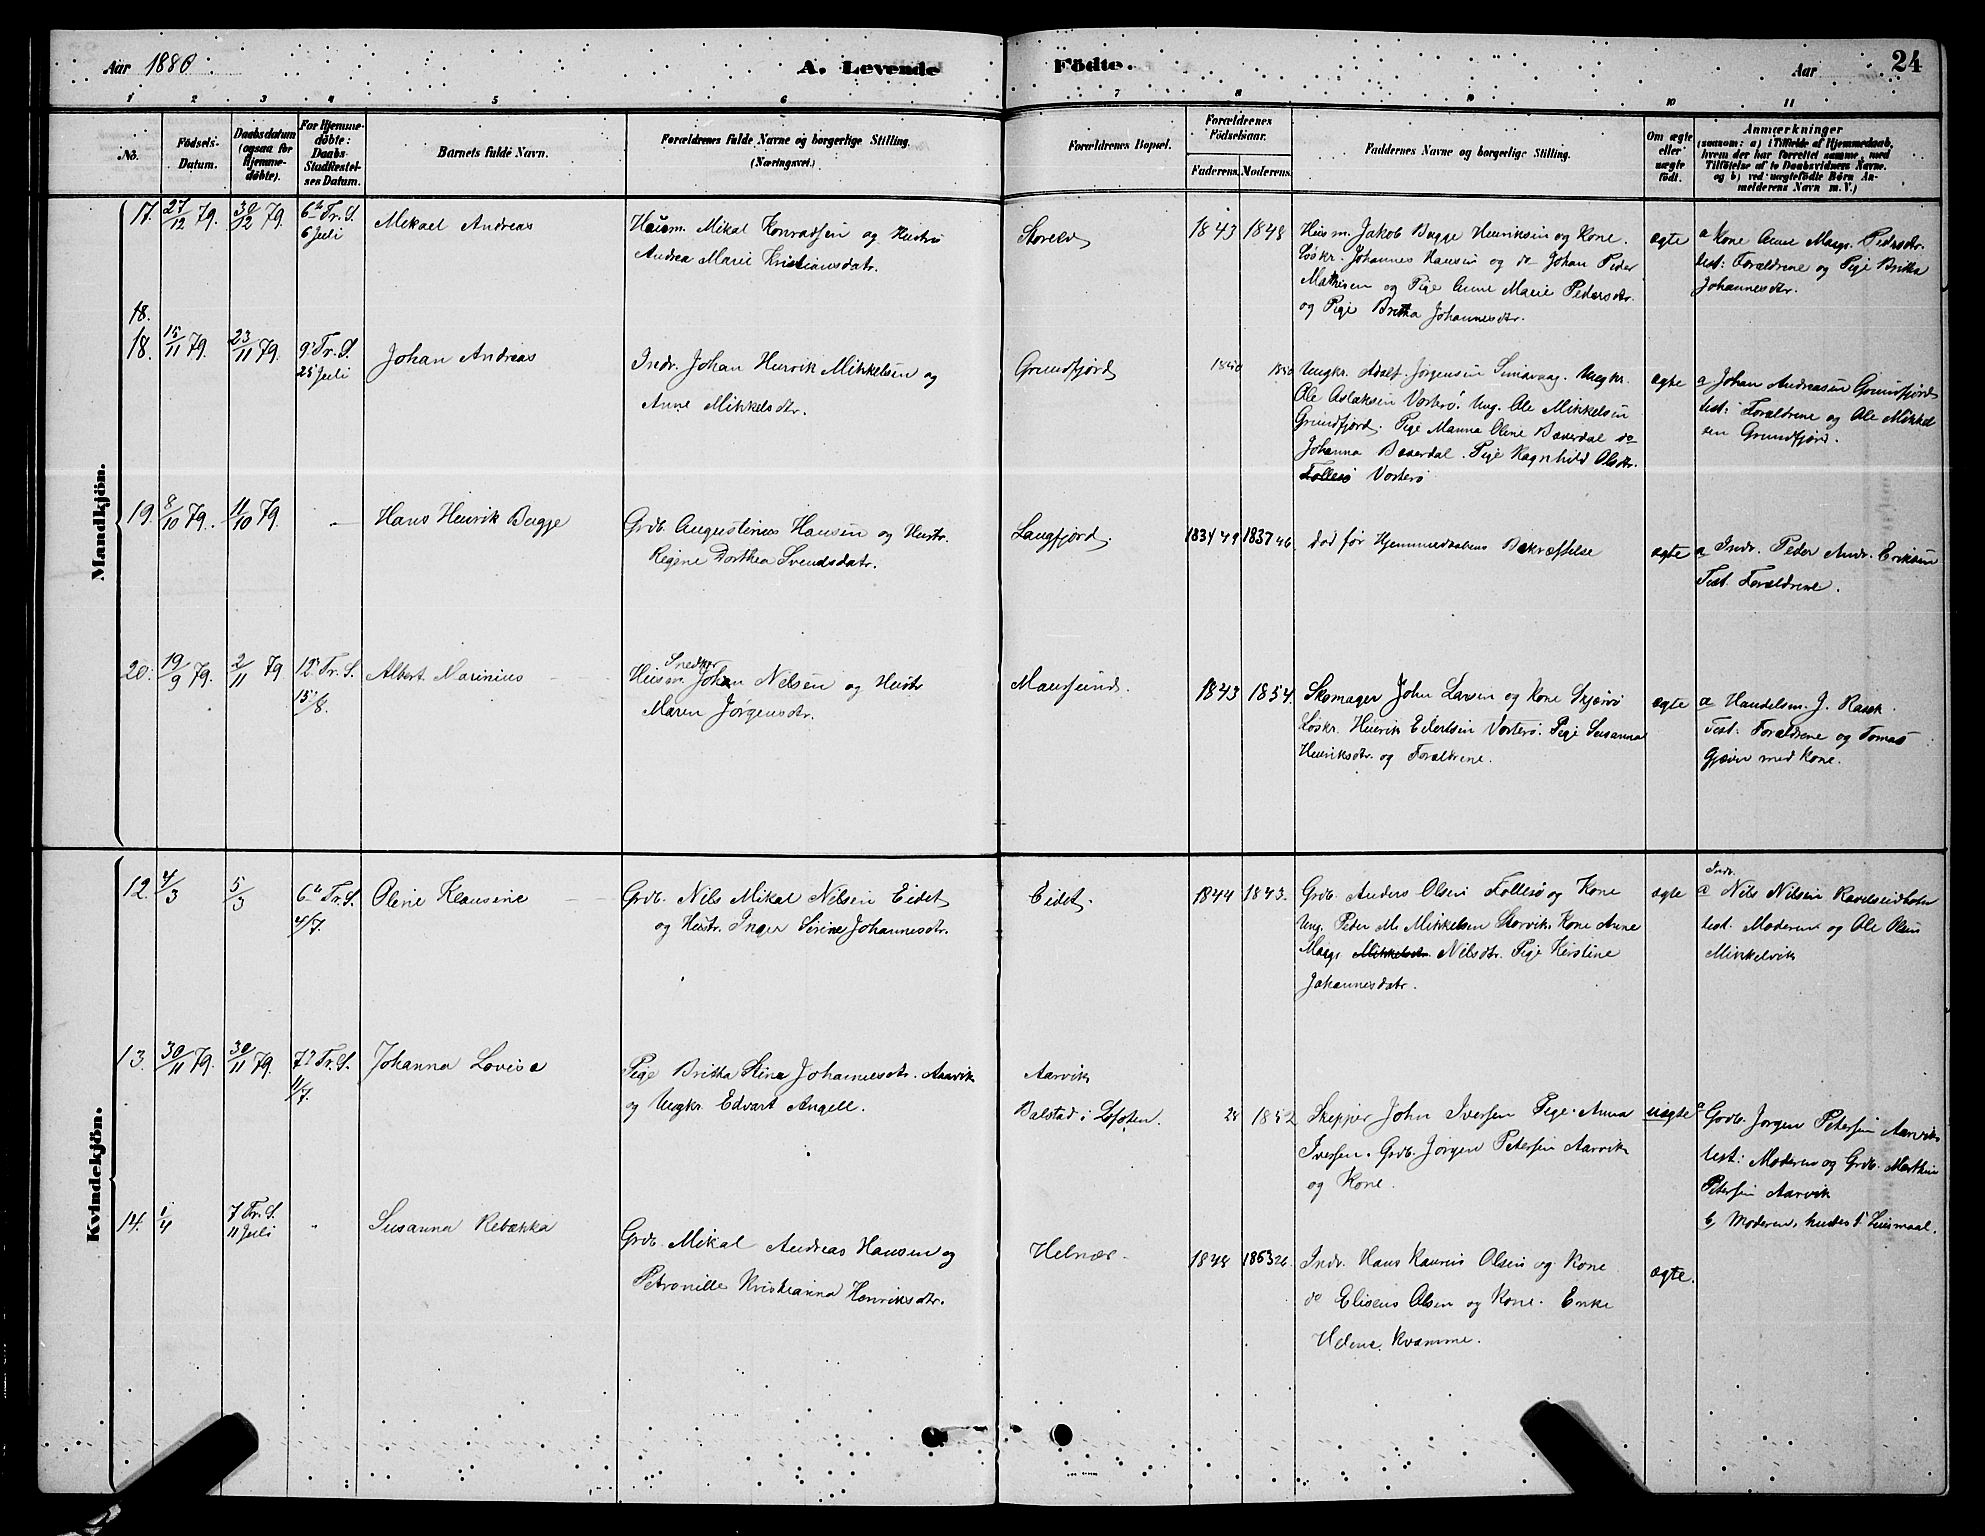 Aar 1880.
A. Levende Födte.
Aar
24
1 2 3 4 5 6 7 8 9 10 11
No.
Födsels-
Datum.
Daabsdatum
(ogsaa for
Hjemme-
döbte).
For Hjemme-
döbte:
Daabs-
Stadfæstel-
ses Datum.
Barnets fulde Navn.
Forældrenes fulde Navne og borgerlige Stilling.
(Næringsvei.)
Forældrenes Bopæl.
Forældrenes
Födselsaar.
Faderens. Moderens.
Faddernes Navne og borgerlige Stilling.
Om ægte
eller
uægte
födt.
Anmærkninger
(saasom: a) i Tilfælde af Hjemmedaab,
hvem der har forrettet samme, med
Tilföielse af to Daabsvidners Navne.
og b) ved uægtefödte Börn An-
melderens Navn m. V.)
Mandkjön.
17. 27/12 79. 30/12 79. 6te Tr. S.
6 Juli
Mikael Andreas
Husm. Mikal Konradsen og Hustru
Andrea Marie Kristiansdatr.
Storeid
1843 1848
Husm. Jakob Bugge Henriksen og Kone.
Löskr. Johannes Hansen og do Johan Peder
Mathisen og Pige Anne Marie Pedersdtr.
og Pige Britha Johannesdtr.
ægte
a Kone Anne Margr. Pedersdtr.
test: Forældrene og Pige Britha
Johannesdtr.
18.
18. 15/11 79. 23/11 79. 9de Tr. S.
25 Juli
Johan Andreas
Indr. Johan Henrik Mikkelsen og
Anne Mikkelsdtr.
Grundfjord
1840 1840
Ungkr. Adolf Jörgensen Simavaag. Ungkr.
Ole Aslaksen Vorterö. Ung. Ole Mikkelsen
Grundfjord. Pige Manna Oline Bæverdal do
Johanna Bæverdal. Pige Ragnhild Olsdtr.
Follesö Vorterö
ægte
a Johan Andreasen Grundfjord
test: Forældrene og Ole Mikkel
sen Grundfjord.
19. 8/10 79. 11/10 79. —
Hans Henrik Bugge
Grdb. Augustinus Hansen og Hustr.
Regine Dorthea Svendsdatr.
Langfjord.
1834 49 1837 46.
död før Hjemmedaabens Bekræftelse
ægte
a Indr. Peder Andr. Eriksen
Test. Forældrene.
20. 19/9 79. 2/11 79 12te Tr. S.
15/8.
Albert Marinius
Snedker
Husm. Johan Nilsen og Hustr
Maren Jörgensdtr.
Maursund.
1843 1854.
Skomager John Larsen og Kone Skjærvö
Löskr. Henrik Edvardsen Vorterö. Pige Susanna
Henriksdtr. og Forældrene.
ægte
a Handelsm. J. Rask.
Test: Forældrene og Tomas
Gjæver med Kone.
Kvindekjön.
12. 4/3 5/3 6te Tr. S.
4/7.
Oline Klausine
Grdb. Nils Mikal Nilsen Eidet
og Hustr. Inger Serine Johannesdtr.
Eidet.
1844 1843.
Grdb. Anders Olsen Follesö og Kone
Ung. Peder M. Mikkelsen Storvik. Kone Anne
Margr. Mikkelsdtr. Nilsdtr. Pige Kerstine
Johannesdatr.
ægte
Indr.
a Nils Nilsen Ravelseidbotn
test. Moderen og Ole Olsen
Minkelvik
13. 30/11 79. 30/11 79. 7de Tr. S.
11/7.
Johanna Lovise
Pige Britha Stina Johannesdtr. Aarvik
og Ungkr. Edvart Angell.
Aarvik
Balstad i Lofoten.
28 1852
Skipper John Iversen Pige Anna
Iversen. Grdb. Jörgen Petersen Aarvik
og Kone.
uægte
a Grdb. Jörgen Petersen Aarvik
test: Moderen og Grdb. Marthin
Petersen Aarvik
b, Moderen,
14. 1/4 7 Tr. S.
11 Juli "
Susanna Rebækka
Grdb. Mikal Andreas Hansen og
Petronille Kristianna Henriksdtr.
Helnæs.
1848 1853 26.
Indr. Hans Laurits Olsen og Kone
do Eliseus Olsen og Kone. Enke
Helene Kvamme.
ægte.